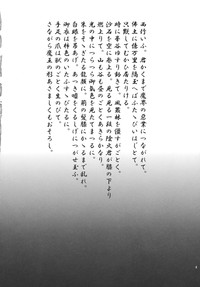 西行いふ。君かくまで魔界の悪業につながれて。
佛土に億万里を隔玉へばふたゝびいはじとて。
只黙してむかひ居たりける。
時に峯谷ゆすり動きて。風叢林を僵すがごとく。
沙石を空に巻上る。見る見る一段の陰火君が膝の下より
燃上りて。山も谷も昼のごとくあきらかなり。
光の中につらつら御気色を見たてまつるに。
朱をそゝぎたる龍顔に。荊の髪膝にかゝるまで乱れ。
白眼を吊あげ。あつき嘘をくるしげにつがせ玉ふ。
御衣は柿色のいたうすゝびたるに。
手足の爪は獣のごとく生のびて。
さながら魔王の形あさましくもおそろし。